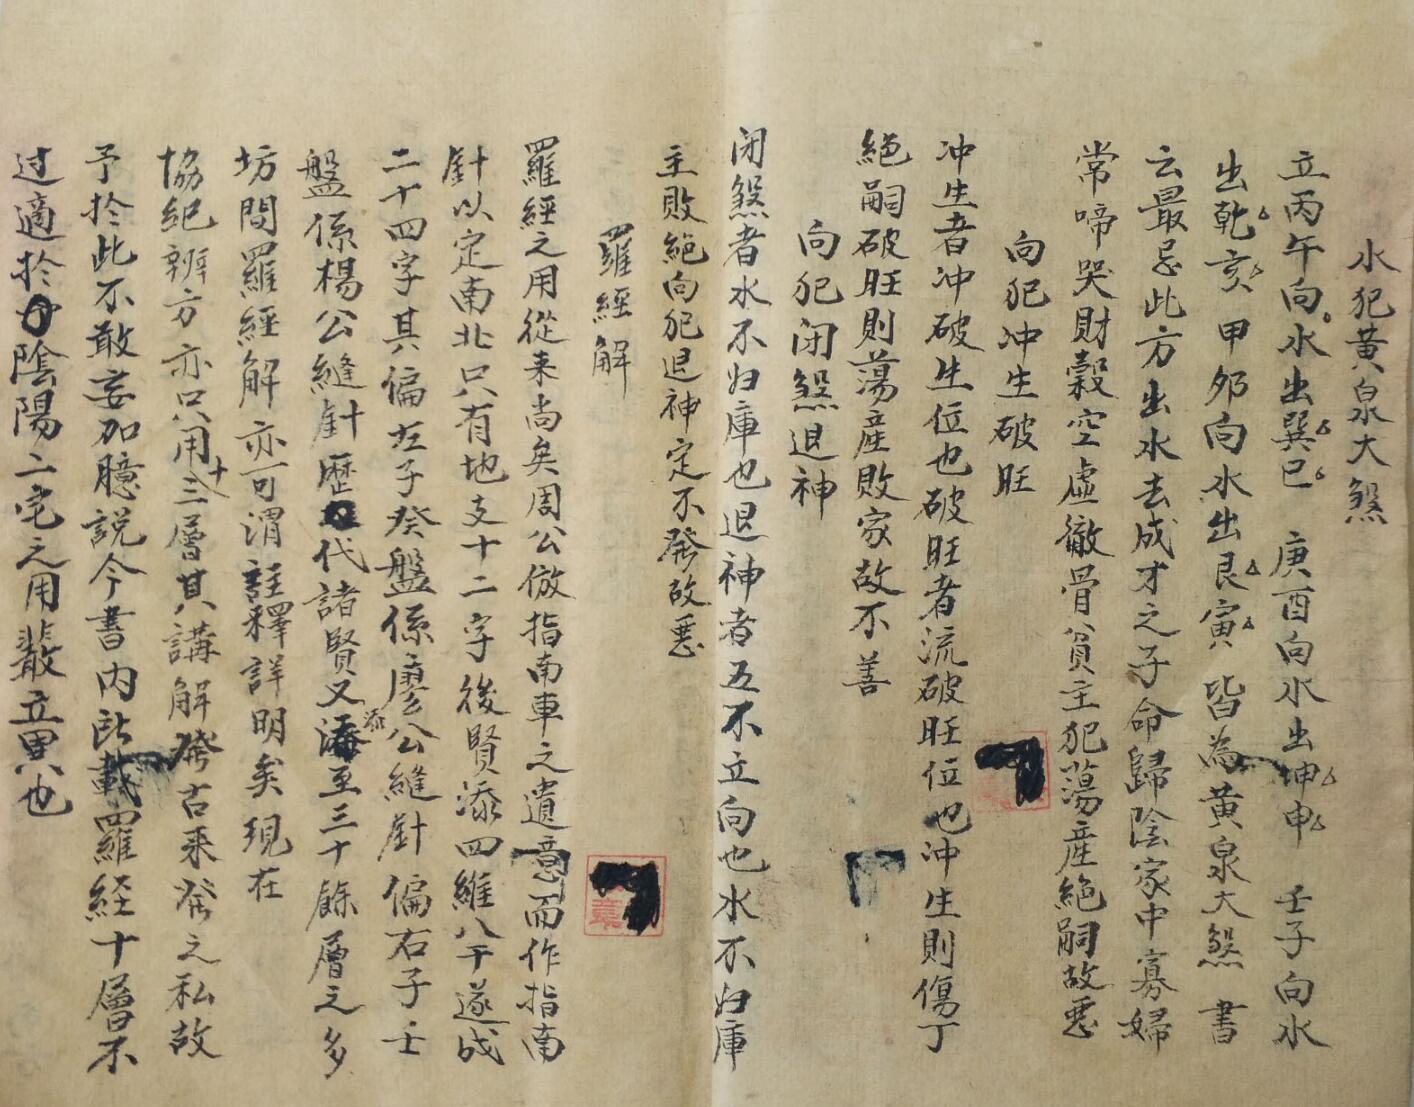 水犯黃泉大煞
立丙午向水出巽巳　庚酉向水出坤申　壬子向水
出乾亥　甲卯向水出艮寅　皆為黃泉大煞　書
云最忌此方出水去成才之子命歸陰家中寡婦
常啼哭財穀空虛徹骨貧主犯蕩產絕嗣故惡
向犯冲生破旺
冲生者冲破生位也破旺者流破旺位也冲生則傷丁
絕嗣破旺則蕩產敗家故不善
向犯閉煞退神
閉煞者水不归庫也退神者五不立向也水不归庫
主敗絕向犯退神定不發故惡
羅經解
羅經之用從来尚矣周公倣指南車之遺意而作指南
針以定南北只有地支十二字後賢添四維八干遂成
二十四字其偏左子癸盤係廖公縫針偏右子壬
盤係楊公縫針歷代諸賢又添至三十餘層之多
坊間羅經解亦可謂註釋詳明矣現在
協紀辨方亦只用十三層其講解發古来發之私故
予於此不敢妄加臆說今書内所載羅经十層不
过適於陰陽二宅之用叢立異也